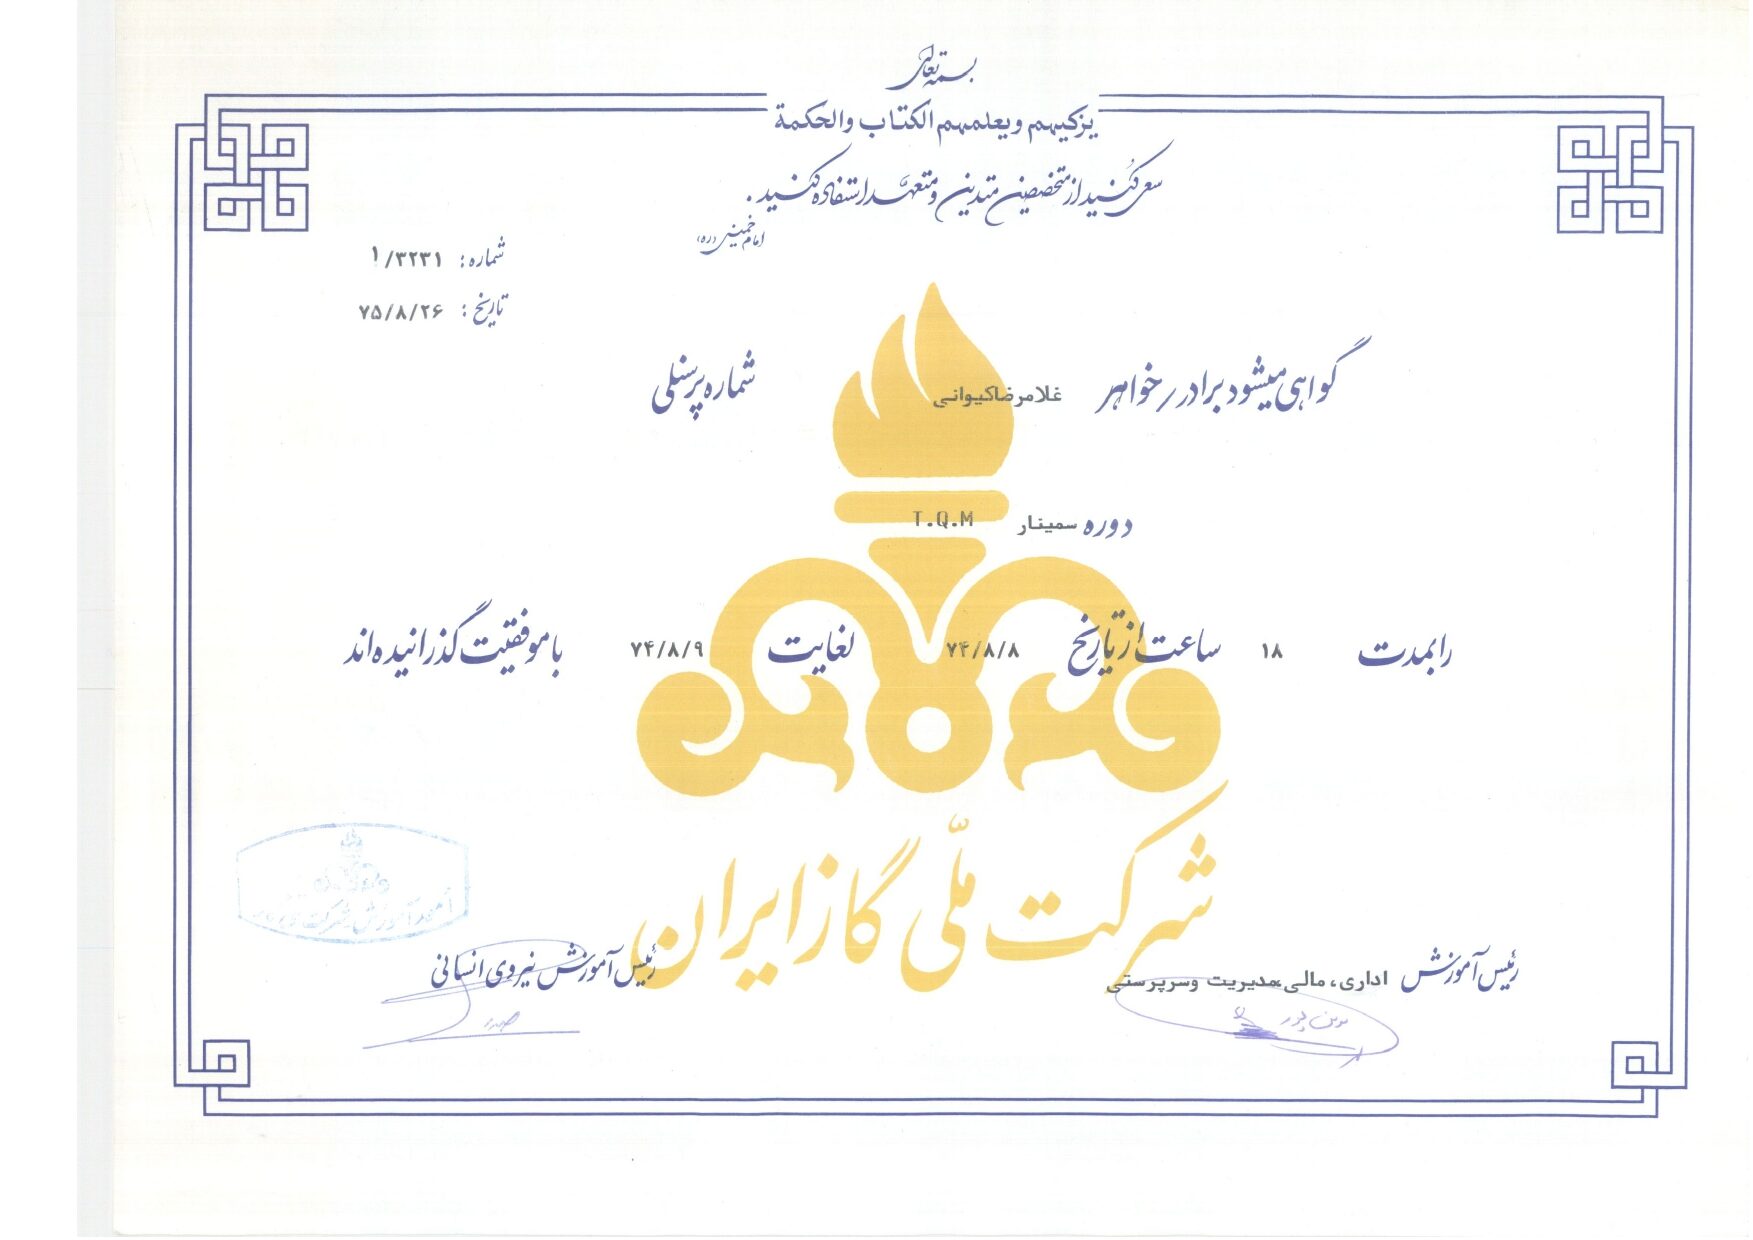 بسمه تعالی
یزکیهم ویعلمهم الکتاب والحکمة
سعی کنید از متخصصین متدین و متعهد استفاده کنید.
امام خمینی (ره)
شماره: ۱/۳۲۳۱
تاریخ: ۷۵/۸/۲۶
گواهی میشود برادر/خواهر غلامرضاکیوانی شماره پرسنلی
دوره سمینار T.Q.M
رابمدت ۱۸ ساعت از تاریخ ۷۴/۸/۸ لغایت ۷۴/۸/۹ با موفقیت گذرانیده اند
شرکت ملّی گاز ایران
رئیس آموزش اداری، مالی،مدیریت وسرپرستی
رئیس آموزش نیروی انسانی